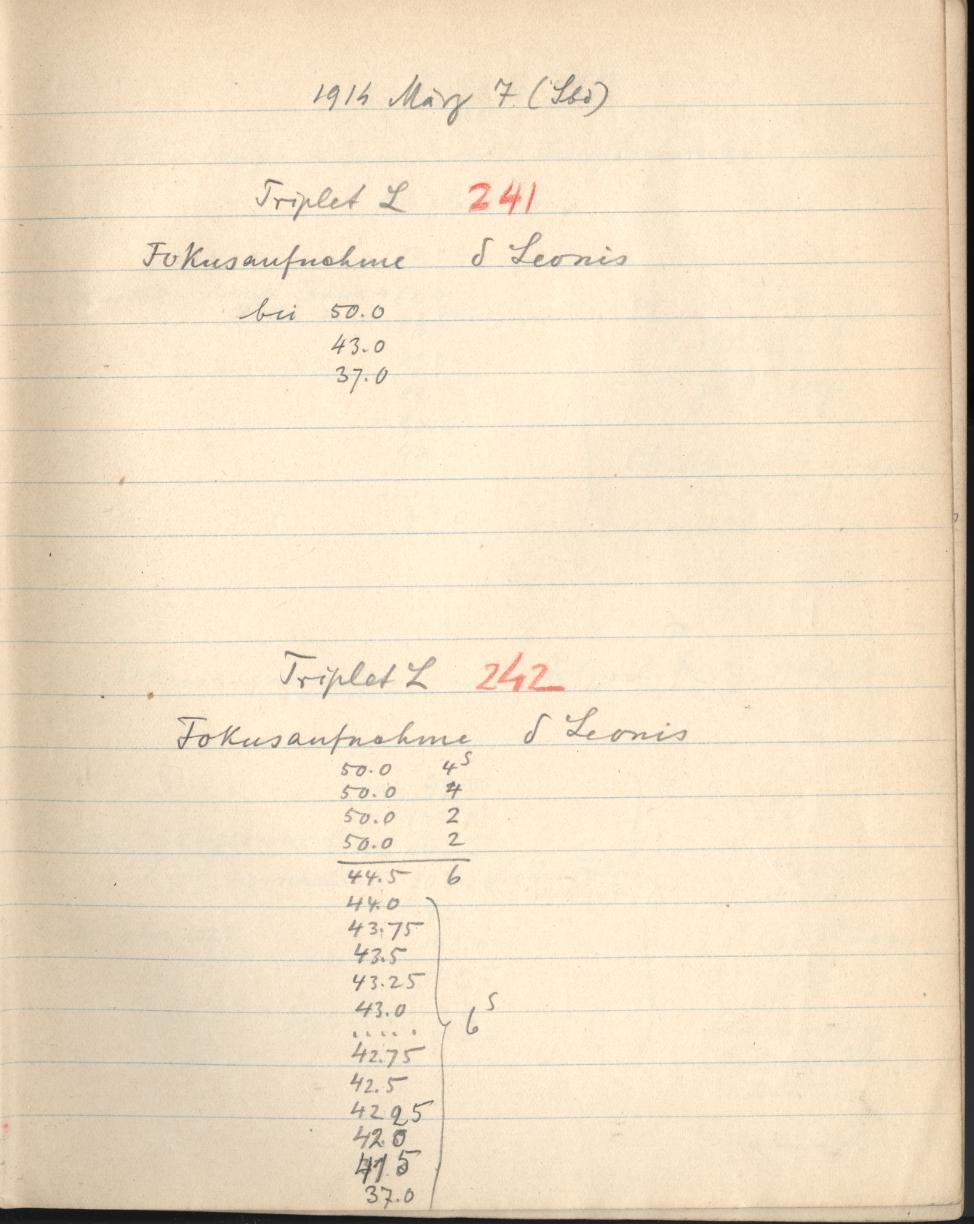 1914 März 7 (Sbd)
Triplet L 241
Fokusaufnahme δ Leonis
bei 50.0
43.0
37.0
Triplet L 242
Fokusaufnahme δ Leonis
50.0 4ˢ
50.0 4
50.0 2
50.0 2
44.5 6
44.0
43.75
43.5
43.25
43.0 6ˢ
.....
42.75
42.5
42.25
42.0
41.5
37.0